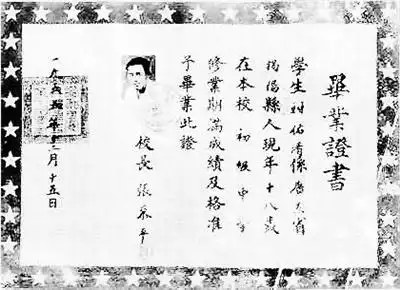 畢業證書
學生 佑清係廣東省
揭陽縣人現年十八歲
在本校 初級中學
修業期滿成績及格准
予畢業此證
校長 張
一九 年 月十五日